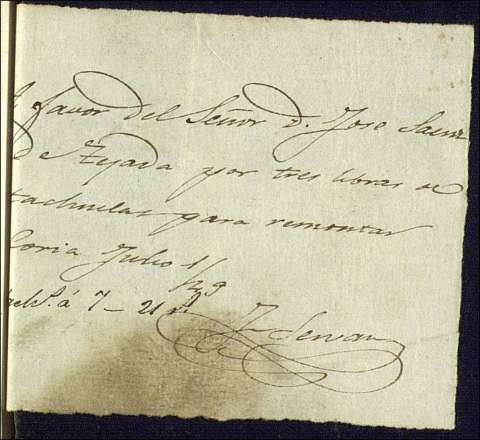 favor del Señor D. Jose Saenz
de Tejada por tres libras de
tachuelas para remontar
Soria Julio 1/49
á 7 - 21 r.s
J. Servan